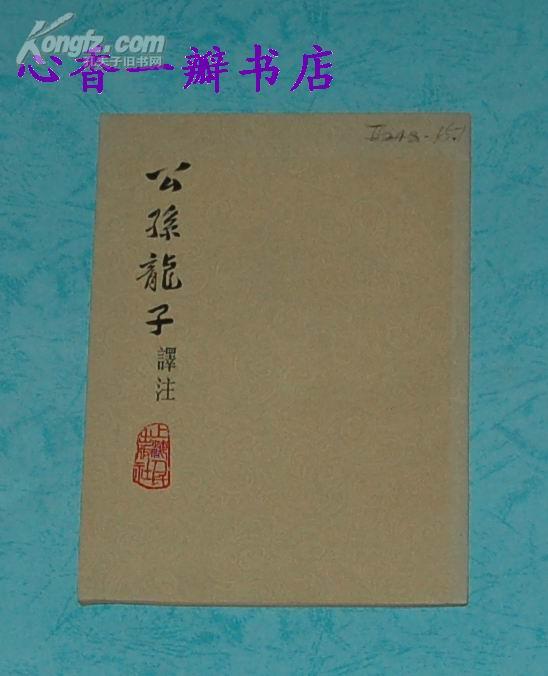 Kongfz.com
孔夫子旧书网
心香一瓣书店
公孫龍子
譯注
上海人民出版社